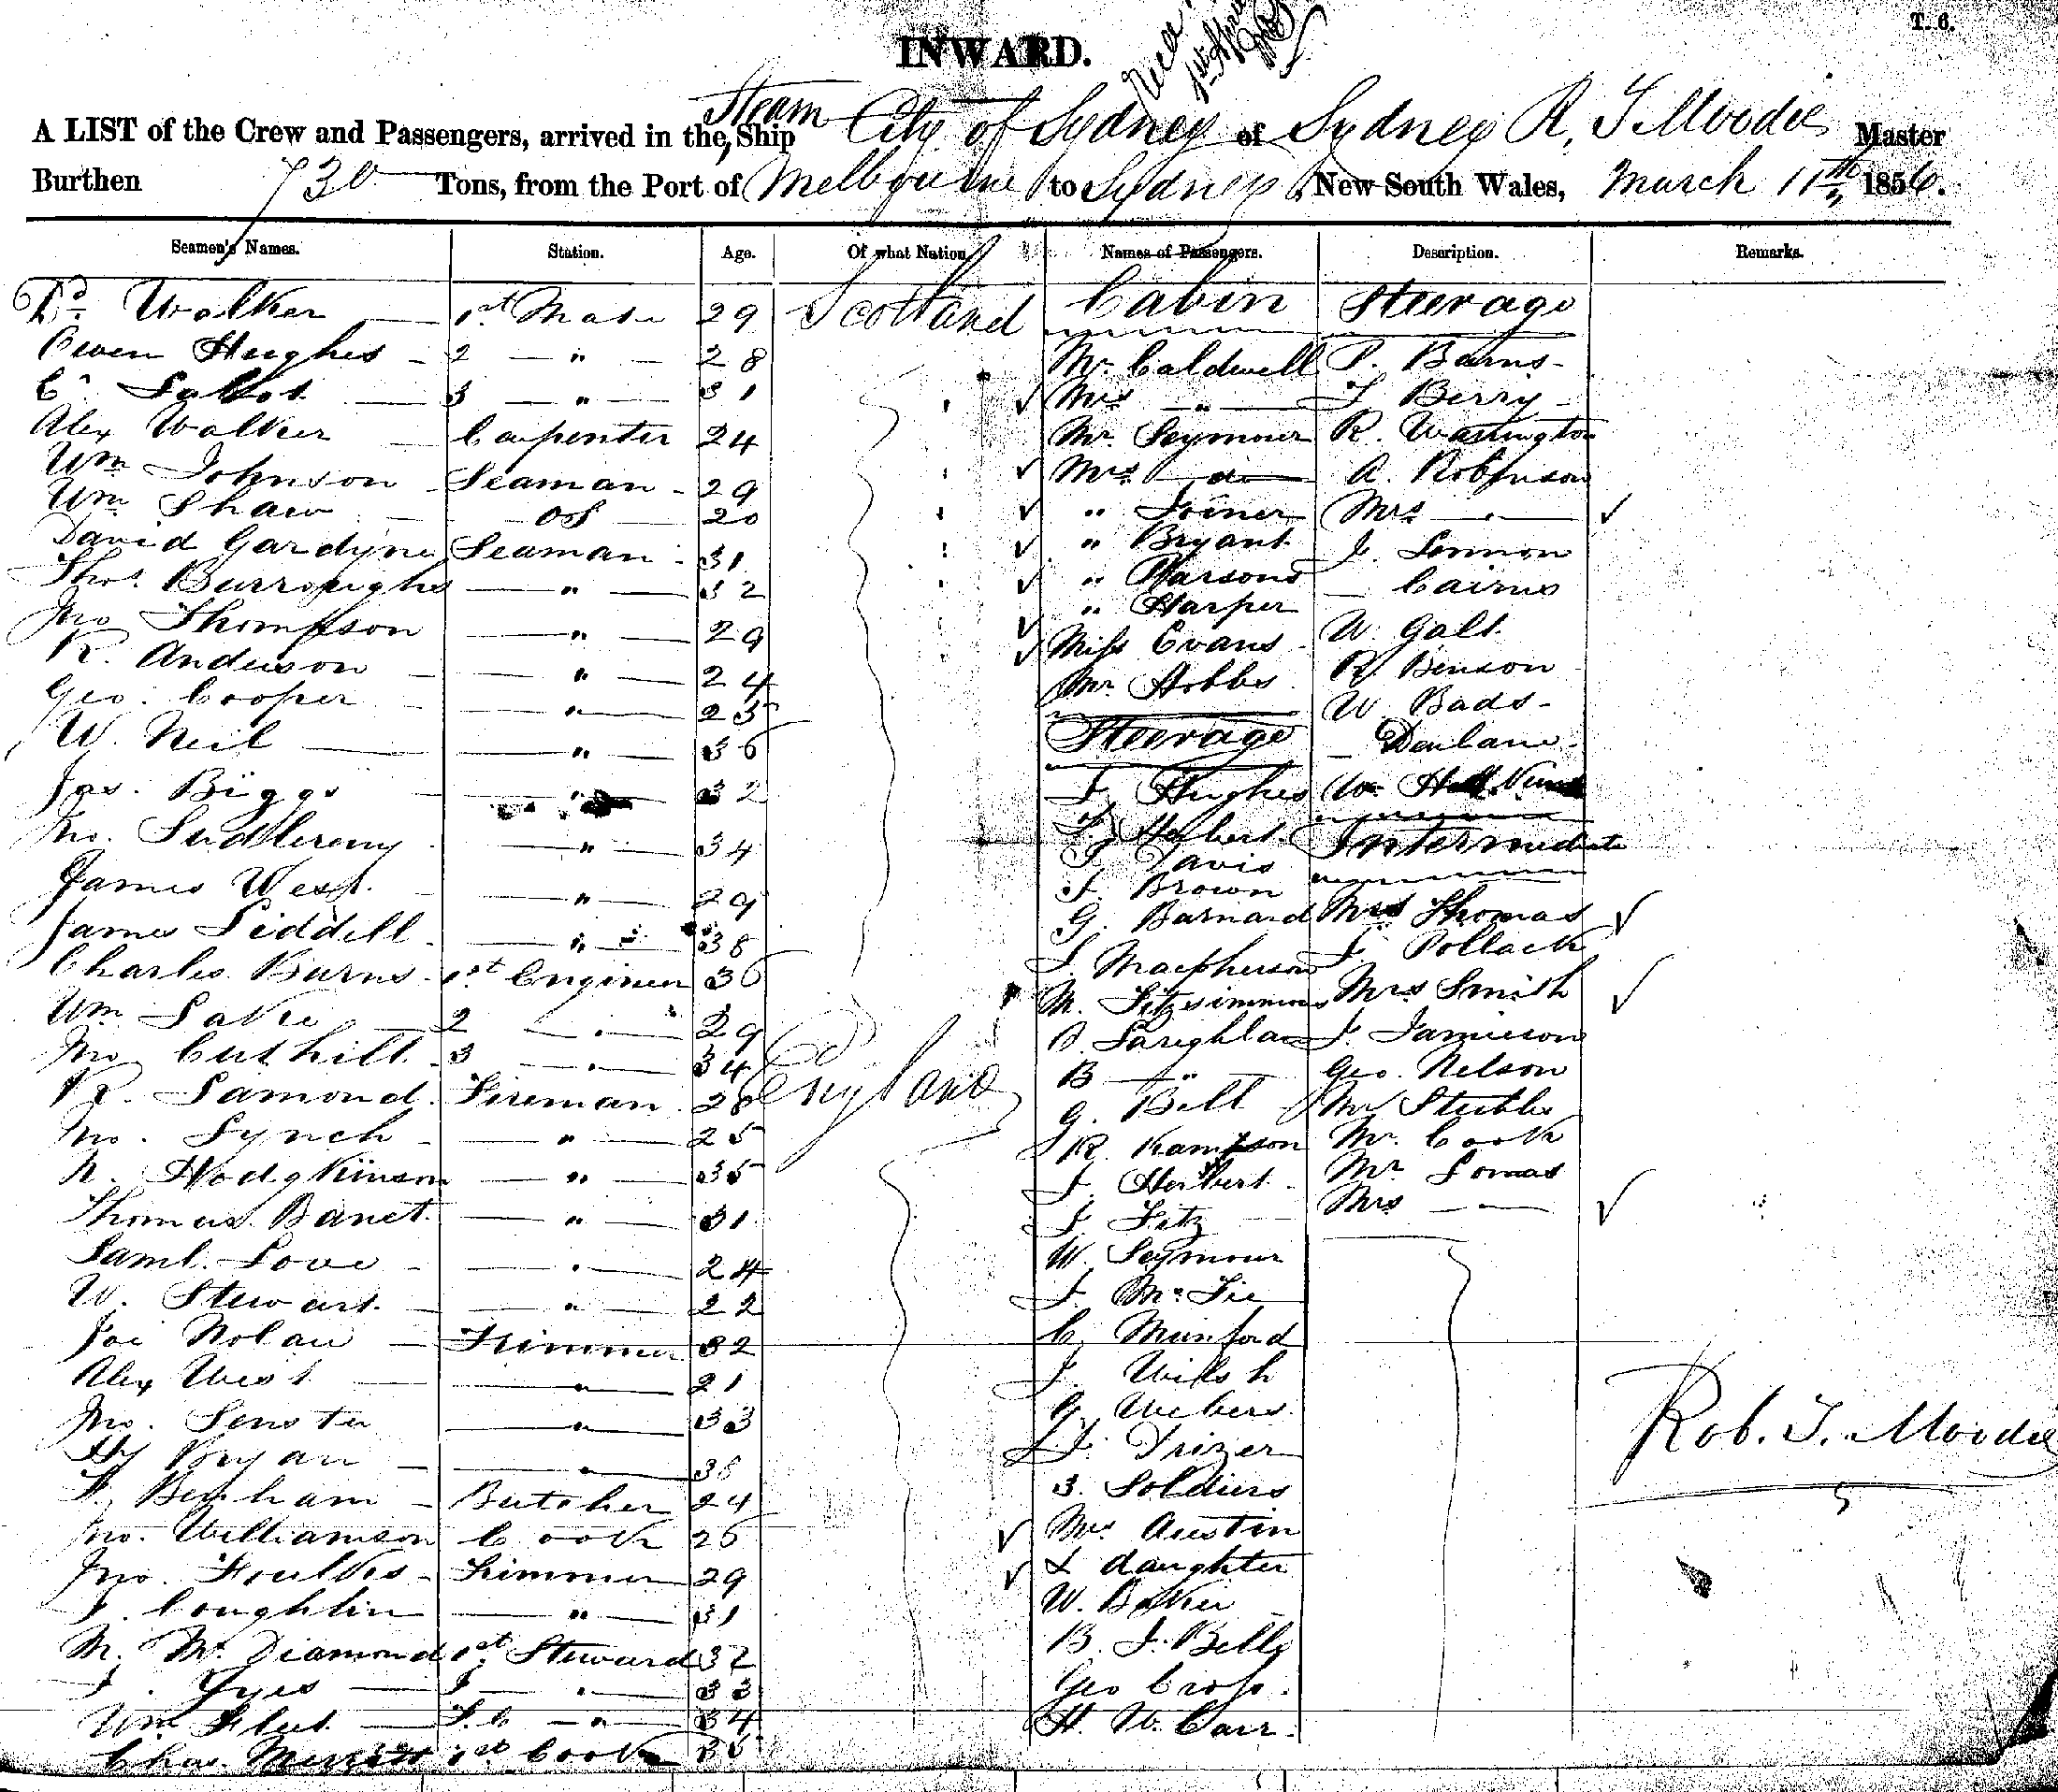 T. 6.
INWARD.
A LIST of the Crew and Passengers, arrived in the Steam Ship City of Sydney of Sydney R. T. Moodie Master
Burthen 730 Tons, from the Port of Melbourne to Sydney New South Wales, March 11th 1856.
Seamen's Names. Station. Age. Of what Nation. Names of Passengers. Description. Remarks.
Walker 1st Mate 29 Scotland Cabin Steerage
Owen Hughes 2 " 28 Mr. Caldwell P. Barns
C. Talbot 3 " 31 Mrs " T Berry
Alex Walker Carpenter 24 Mr. Seymour R. Warrington
Wm Johnson Seaman 29 Mrs do A. Robinson
Wm Shaw OS 20 " Joiner Mrs "
David Gardyne Seaman 31 " Bryant J. Lennon
Thos. Burroughs " 32 " Parsons Cairns
Jno Thompson " 29 " Harper
R. Anderson " 24 Miss Evans W. Galt
Geo. Cooper " 23 Mr Hobbs R. Benson
W. Neil " 36 Steerage W Bads
Denlane
Jas. Biggs " 32 J. Hughes Wm
Jno. " 34 J. Herbert Intermediate
J. Davis
James West " 29 J. Brown
G. Barnard Mrs Thomas
James Liddell " 38 J. Macpherson J. Pollack
Charles Burns 1st Engineer 36 M. Fitzsimmons Mrs Smith
Wm 2 " 29 J. Jamieson
Jno Cuthill 3 " 34 England B " Geo. Nelson
R. Lamond Fireman 28 G. Bell Mr Stubbs
Jno. Lynch " 25 R. Mr. Cook
N. Hodgkinson " 35 J. Herbert Mr Lomas
Thomas Banet " 31 J. Fitz Mrs "
Saml. Love " 24 W. Seymour
W. Stewart " 22 J. McFie
Joe Nolan Trimmer 32 C. Munford
Alex West " 21 J. Welsh
Jno. Senster " 33 G. Webers
Hy Bryan " 38 J. Frizer
Rob. T. Moodie
F. Benham Butcher 24 3. Soldiers
Jno. Williamson Cook 26 Mrs Austin
Jno. Foulkes Trimmer 29 & daughter
J. Coughlin " 31 W. Baker
M. McDiamond 1st Steward 32 B. J. Belly
J. " 33 Geo Cross
Wm " 34 H. W. Carr
Chas. Merritt 1st Cook 35